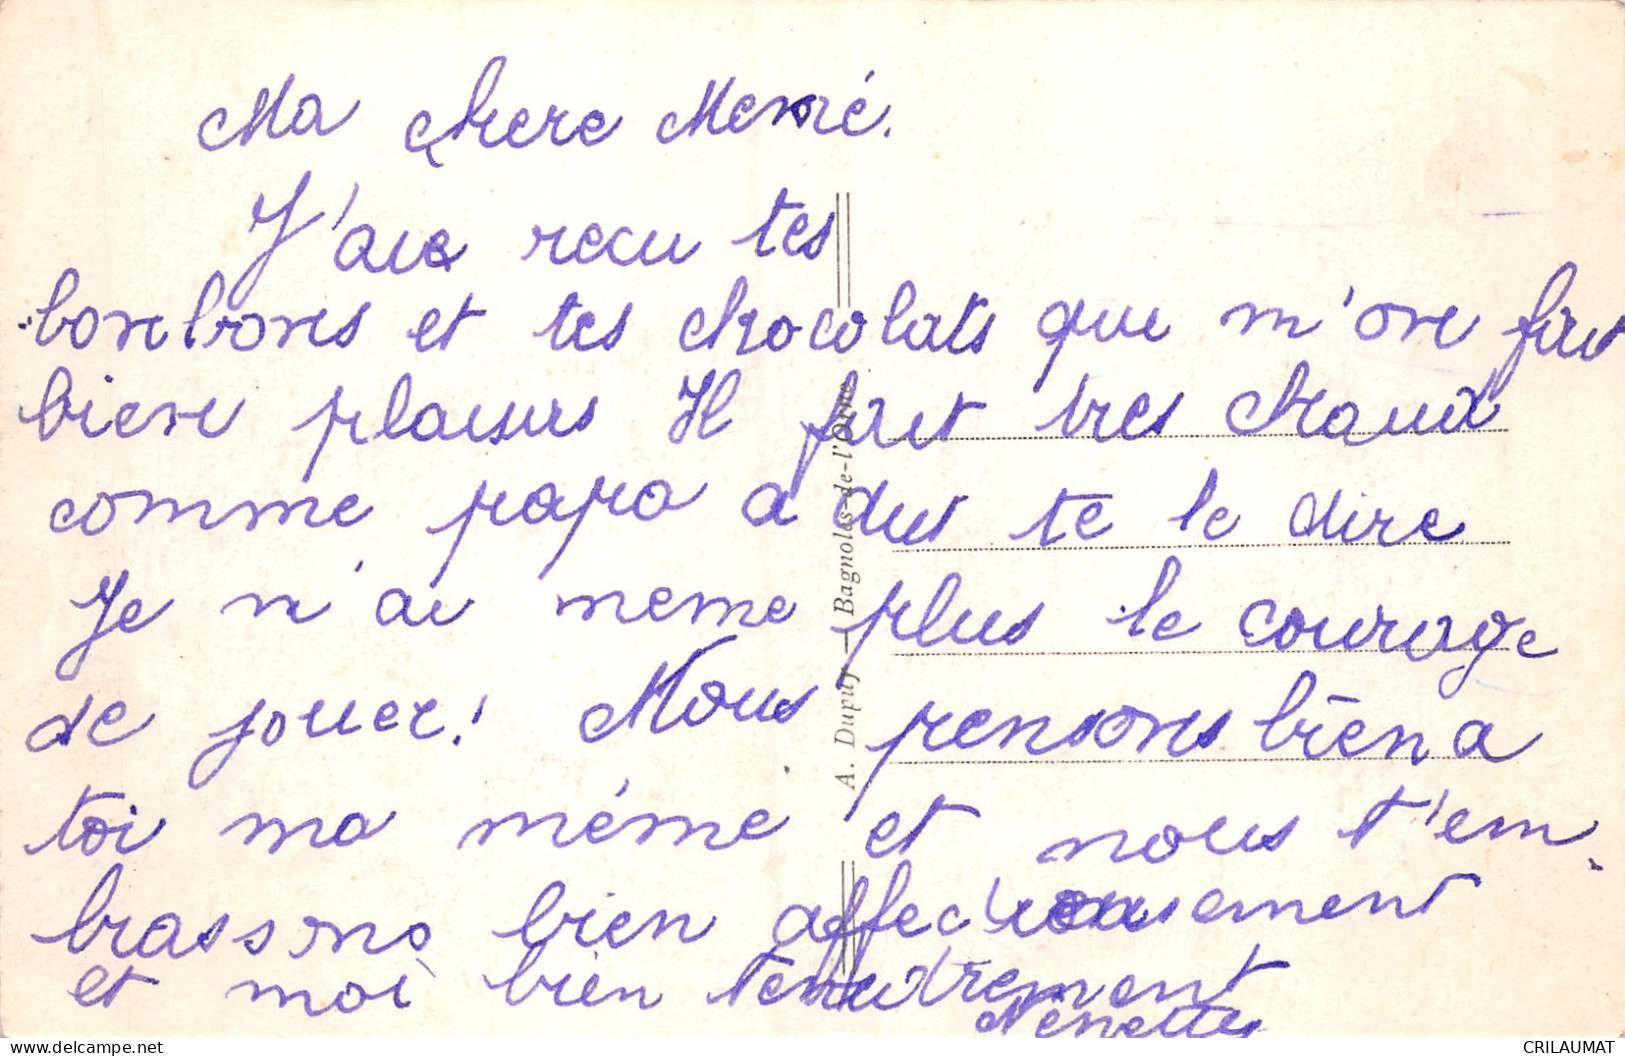 Ma chere Memé.
J'aie recu tes
bonbons et tes chocolats que m'on fait
bien plaisirs Il fait tres chaud
comme papa a dus te le dire
Je n'ai meme plus le courage
de jouer! Nous pensons bien a
toi ma mémé et nous t'em.
brassons bien affectueusement
et moi bien tendrement
Nenette
A. Dupuy — Bagnoles-de-l'Orne
CRILAUMAT
delcampe.net